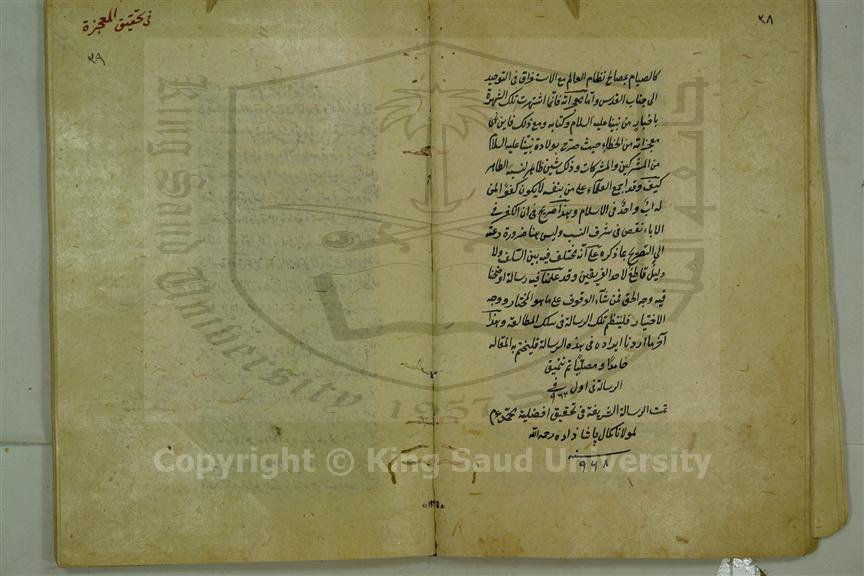 ٣٨
كالصيام بمصالح نظام العالم مع الاستغراق فى التوحيد
الى جناب القدس واما معجزاته فانما اشتهرت تلك الشهرة
باخبار من نبينا عليه السلام وكتابه ومع ذلك فاين هى
معجزاته من الخطاء حيث صرح بولادة نبينا عليه السلام
من المشركين والمشركات وذلك شين ظاهر لنسبه الطاهر
كيف وقد اجمع العلماء على من بنفسه لا يكون كفوا لمن
له اب واحد فى الاسلام وهذا صريح فى ان الكفر فى
الاباء نقص فى شرف النسب وليس هنا ضرورة دعته
الى التصريح بما ذكره على انه مختلف فيه بين السلف ولا
دليل قاطع لاحد الفريقين وقد علمنا فيه رسالة اوضحنا
فيه وجه الحق فمن شاء الوقوف على ما هو المختار ووجه
الاختيار فلينتظم تلك الرسالة فى سلك المطالعة وهذا
آخر ما اردنا ايراده فى هذه الرسالة فليختم به المقاله
حامدا و مصليا تم تنميق
الرسالة فى اول
تمت الرسالة الشريفة فى تحقيق افضلية محمد عم
لمولانا كمال پاشا زاده رحمه الله
سنه
٩٦٨
فى تحقيق المعجزة
٣٩
King Saud University
1957
Copyright © King Saud University